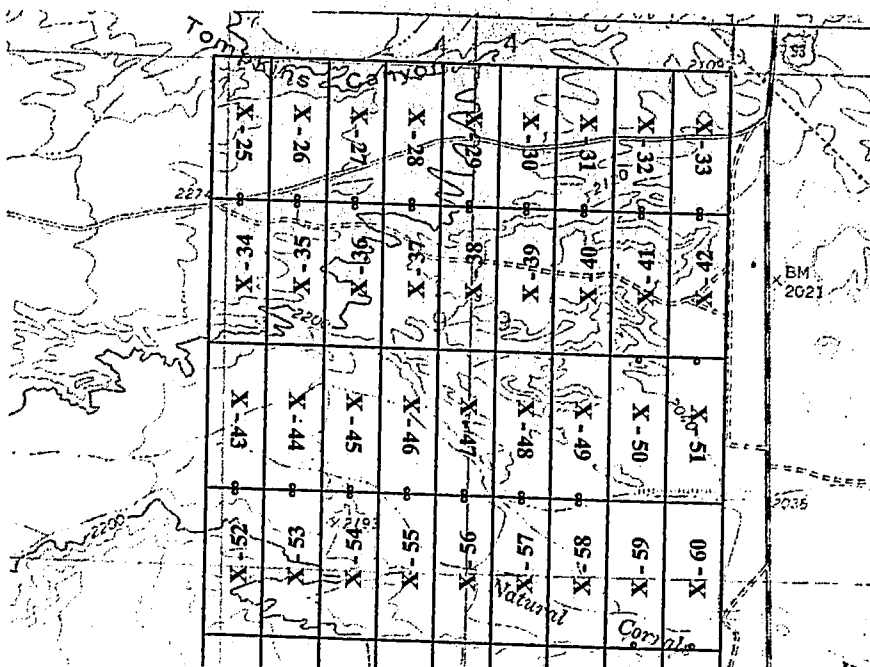 Tompkins Canyon
4
93
2100
X-25
X-26
X-27
X-28
X-29
X-30
X-31
X-32
X-33
2110
X-34
X-35
X-36
X-37
X-38
X-39
X-40
X-41
X-42
BM
2021
2200
X-43
X-44
X-45
X-46
X-47
X-48
X-49
X-50
X-51
2035
2200
X-52
X-53
X-54
X-55
X-56
X-57
X-58
X-59
X-60
2193
Natural Corrals